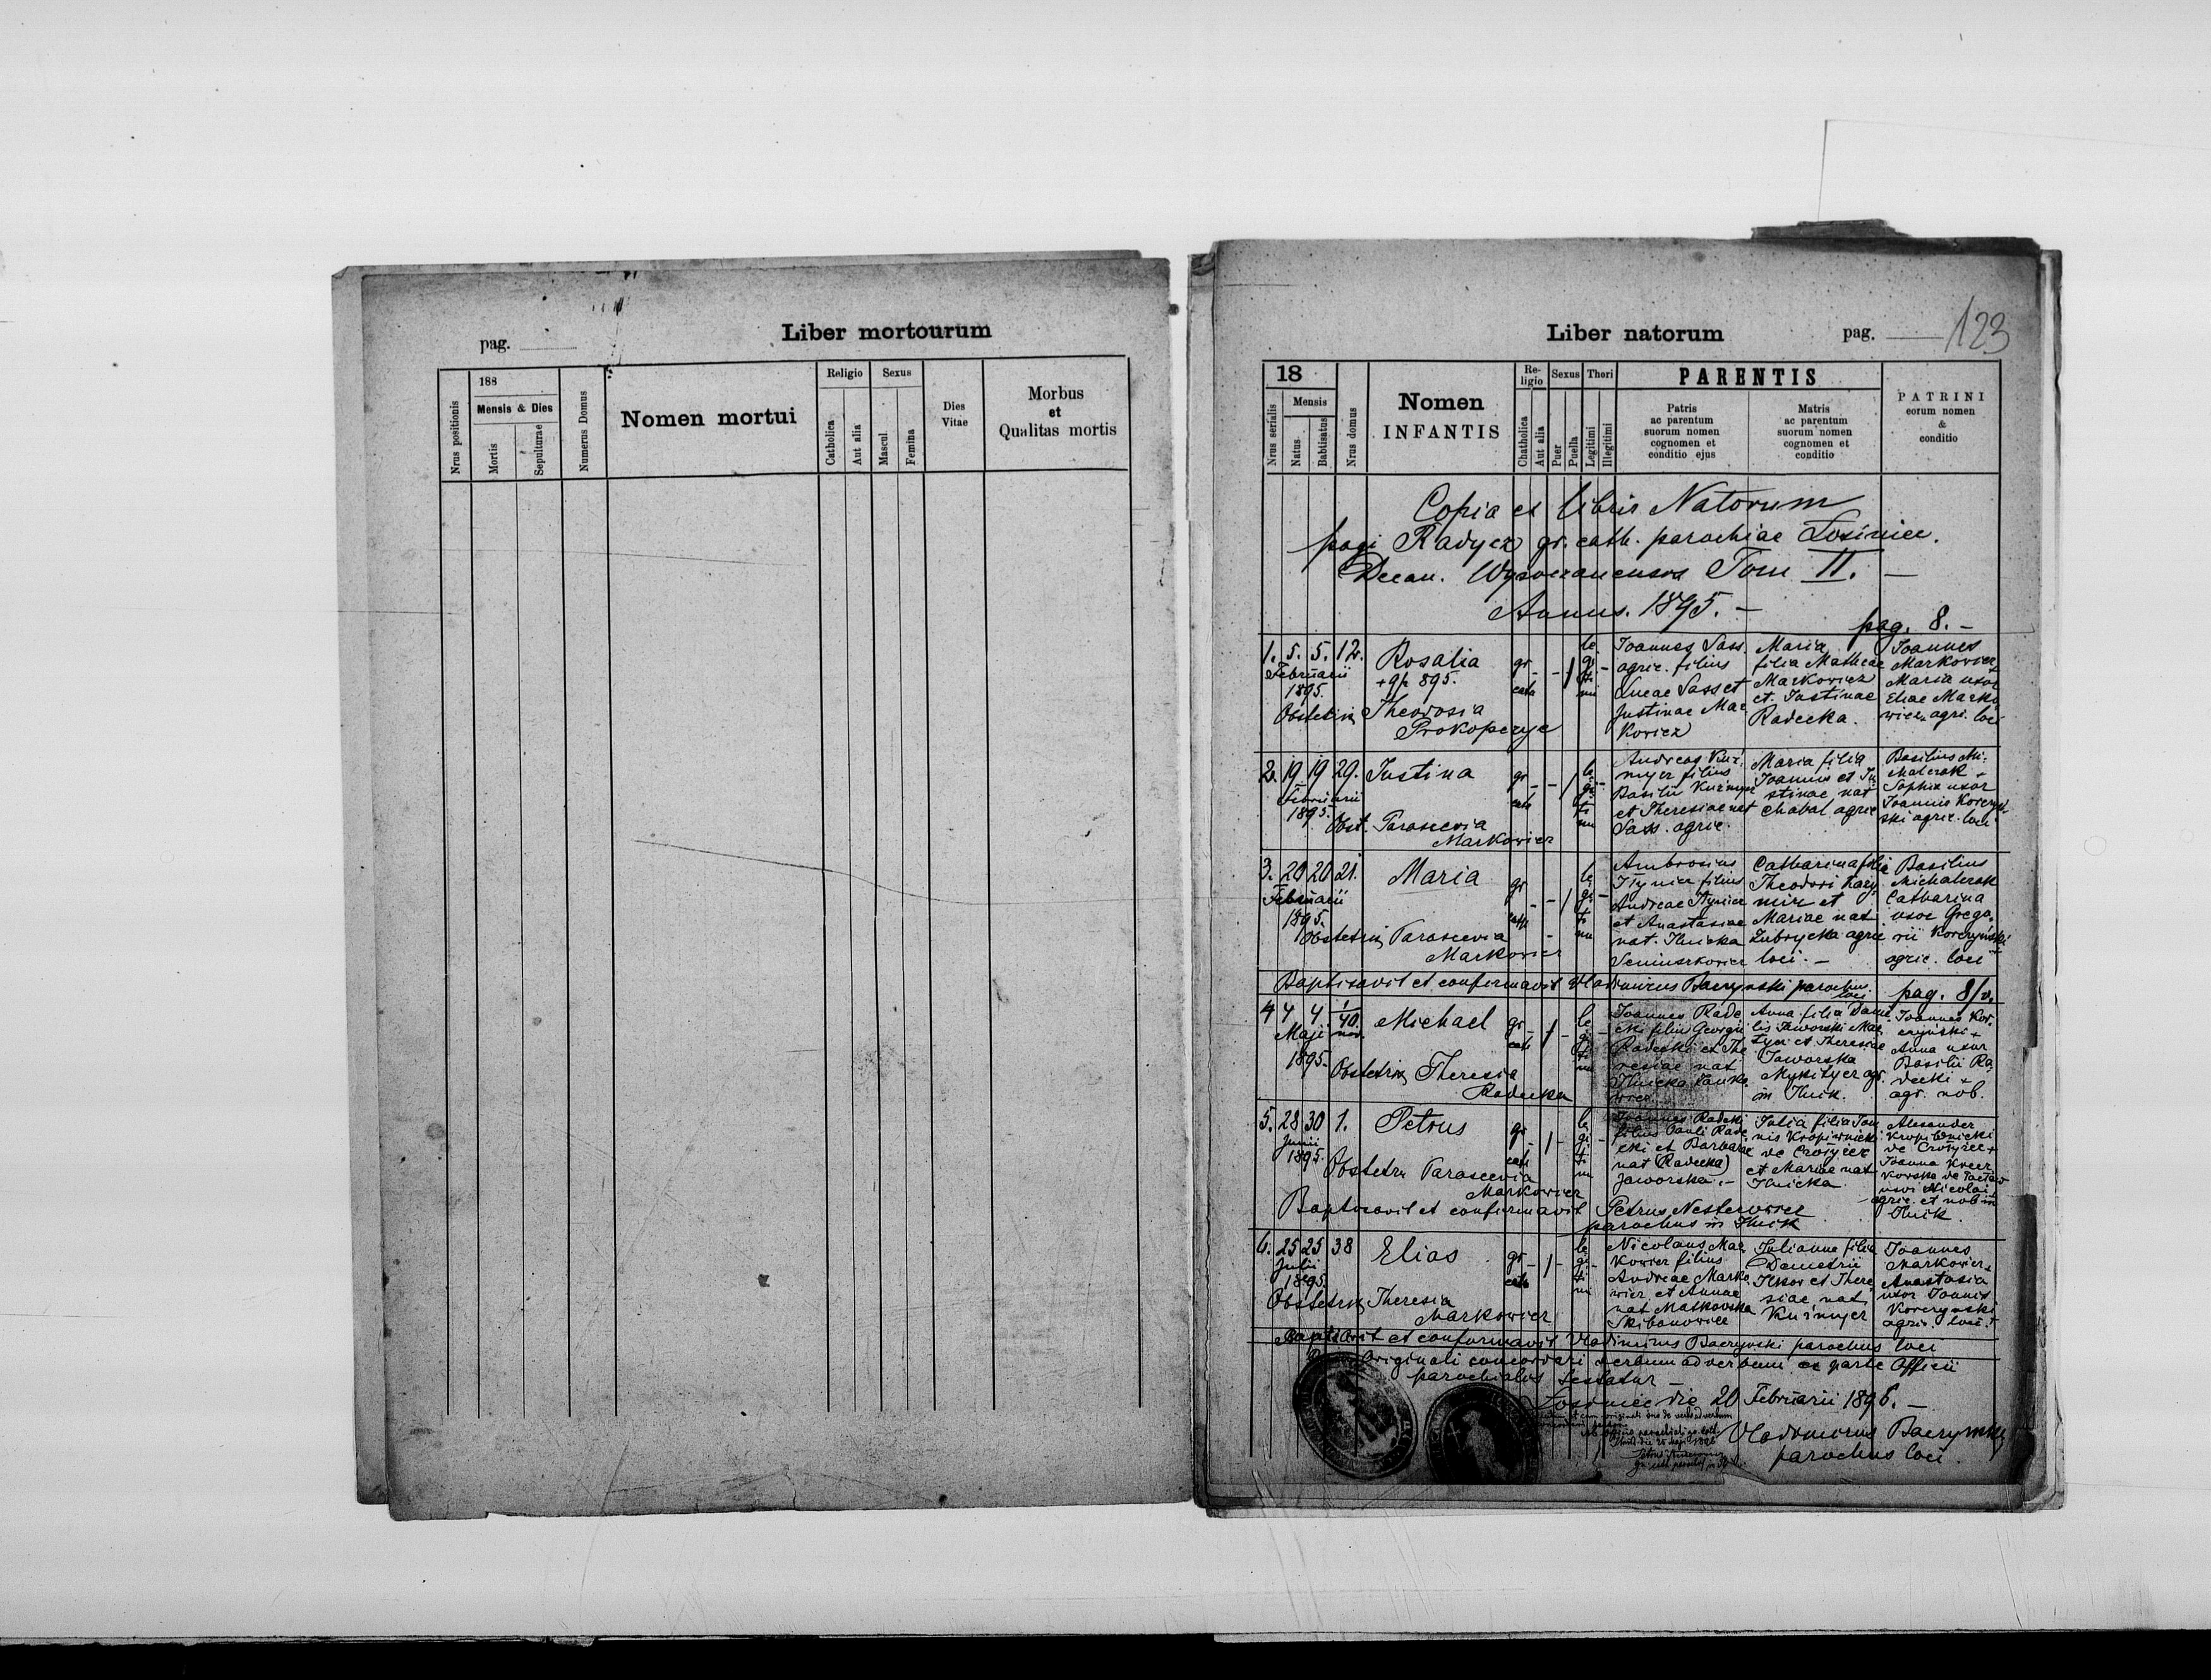 Liber mortourum
pag.
188
Mensis & Dies
Nrus positionis
Mortis
Sepulturae
Numerus Domus
Nomen mortui
Religio
Catholica
Aut alia
Sexus
Mascul.
Femina
Dies
Vitae
Morbus
et
Qualitas mortis
Liber natorum
pag. 123
18
Mensis
Nrus serialis
Natus
Babtisatus
Nrus domus
Nomen
INFANTIS
Re-
ligio
Chatholica
Aut alia
Sexus
Puer
Puella
Thori
Legitimi
Illegitimi
PARENTIS
Patris
ac parentum
suorum nomen
cognomen et
conditio ejus
Matris
ac parentum
suorum nomen
cognomen et
conditio
PATRINI
eorum nomen
&
conditio
Copia ex libris Natorum
pagi Radycz gr. cath. parochiae Łosiniec.
Decan. Wysoczanensis Tom II. —
Annus. 1895. —
pag. 8. —
1. 5. 5. 12.
Februarii
1895.
Rosalia
+ 9/2 895.
Obstetrix Theodosia
Prokopczyc
gr
cath
le
gi
ti
mi
Joannes Sass
agric. filius
Lucae Sass et
Justinae Mar
kowicz
Maria
filia Matheae
Markowicz
et Justinae
Radecka.
Joannes
Markowicz
Maria uxor
Eliae Marko
wicz agri. loci
2. 19 19 29.
Februarii
1895.
Justina
Obst. Parascevia
Markowicz
gr
cath
le
gi
ti
mi
Andreas Kuź.
myer filius
Basilii Kuźmyer
et Theresiae nat
Sass. agric.
Maria filia
Joannis et Ju
stinae nat
Chabal agric
Basilius Mi
chalczak +
Sophia uxor
Joannis Korczyń
ski agric. loci
3. 20 20 21.
Februarii
1895.
Maria
Obstetrix Parascevia
Markowicz
gr
cath
le
gi
ti
mi
Ambrosius
filius
Andreae
et Anastasiae
nat. Ilnicka
Catharina filia
Theodori
et
Mariae nat
Zubrycka agric
loci. —
Basilius
Michalczak
Catharina
uxor Grego.
rii Korczyński
agric. loci
Baptisavit et confirmavit Vladimirus Baczynski parochus
loci
pag. 8/v.
4 4 4 40.
Maji
1895.
Michael
Obstetrix Theresia
Radecka
gr
cath
le
gi
ti
mi
Joannes Rade
cki filius Georgii
Radecki et The
resiae nat
Ilnicka
Anna filia Dani
lis Jaworski
et Theresiae
Jaworska
in Ilnik.
Joannes Kor.
czyński +
Anna uxor
Basilii Ra
decki +
agr. nob.
5. 28 30 1.
Junii
1895.
Petrus
Obstetrix Parascevia
Markowicz
gr
cath
le
gi
ti
mi
Joannes Radecki
filius Pauli Rade
cki et Barbarae
nat (Radecka)
Jaworska. —
Julia filia Joan
nis Kropiwnicki
de
et Mariae nat
Ilnicka
Alexander
Kropiwnicki
de
Joanna
uxor Nicolai
agric. et nob in
Ilnik.
Baptisavit et confirmavit Petrus Nesterowicz
parochus in Ilnik
6. 25 25 38
Julii
1895.
Elias
Obstetrix Theresia
Markowicz
gr
cath
le
gi
ti
mi
Nicolaus Mar
kowicz filius
Andreae Marko
wicz et Annae
nat Matkowska
Skibanowicz
Julianna filia
Demetrii
et There
siae nat
Kuźmyer
Joannes
Markowicz +
Anastasia
uxor Joannis
Korczynski
agric. loci. +
Baptisavit et confirmavit Vladimirus Baczynski parochus loci
originali concordari verbum ad verbum ex parte Officii
parochialis testatur —
Łosiniec die 20 Februarii 1896. —
Vladimirus Baczynski
parochus loci.